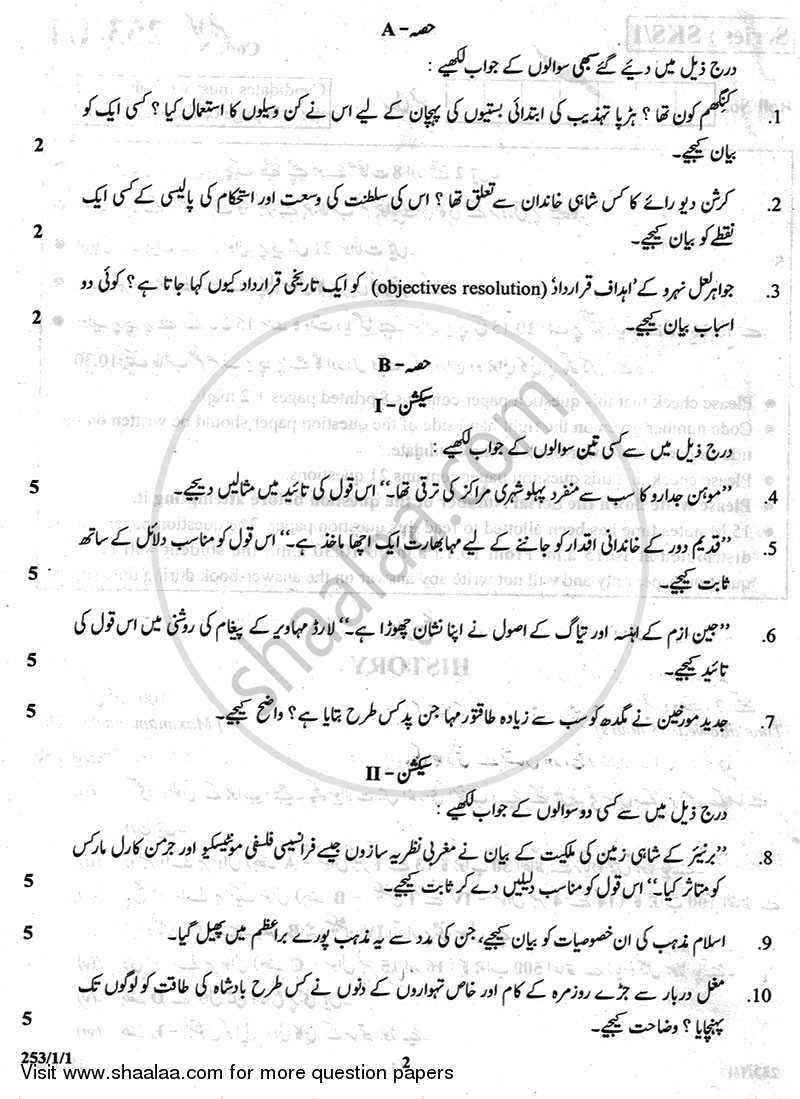 حصہ - A
درج ذیل میں دیے گئے سبھی سوالوں کے جواب لکھیے :
1. کنگھم کون تھا ؟ ہڑپا تہذیب کی ابتدائی بستیوں کی پہچان کے لیے اس نے کن وسیلوں کا استعمال کیا ؟ کسی ایک کو
بیان کیجیے۔ 2
2. کرشن دیو رائے کا کس شاہی خاندان سے تعلق تھا ؟ اس کی سلطنت کی وسعت اور استحکام کی پالیسی کے کسی ایک
نقطے کو بیان کیجیے۔ 2
3. جواہر لعل نہرو کے ’اہداف قرارداد‘ (objectives resolution) کو ایک تاریخی قرارداد کیوں کہا جاتا ہے ؟ کوئی دو
اسباب بیان کیجیے۔ 2
حصہ - B
سیکشن - I
درج ذیل میں سے کسی تین سوالوں کے جواب لکھیے :
4. ”موہن جدارو کا سب سے منفرد پہلو شہری مراکز کی ترقی تھا۔“ اس قول کی تائید میں مثالیں دیجیے۔ 5
5. ”قدیم دور کے خاندانی اقدار کو جاننے کے لیے مہابھارت ایک اچھا ماخذ ہے۔“ اس قول کو مناسب دلائل کے ساتھ
ثابت کیجیے۔ 5
6. ”جین ازم کے اہنسہ اور تیاگ کے اصول نے اپنا نشان چھوڑا ہے۔“ لارڈ مہاویر کے پیغام کی روشنی میں اس قول کی
تائید کیجیے۔ 5
7. جدید مورخین نے مگدھ کو سب سے زیادہ طاقتور مہا جن پد کس طرح بتایا ہے ؟ واضح کیجیے۔ 5
سیکشن - II
درج ذیل میں سے کسی دو سوالوں کے جواب لکھیے :
8. ”برنیئر کے شاہی زمین کی ملکیت کے بیان نے مغربی نظریہ سازوں جیسے فرانسیسی فلسفی مونٹیسکیو اور جرمن کارل مارکس
کو متاثر کیا۔“ اس قول کو مناسب دلیلیں دے کر ثابت کیجیے۔ 5
9. اسلام مذہب کی ان خصوصیات کو بیان کیجیے، جن کی مدد سے یہ مذہب پورے براعظم میں پھیل گیا۔ 5
10. مغل دربار سے جڑے روزمرہ کے کام اور خاص تہواروں کے دنوں نے کس طرح بادشاہ کی طاقت کو لوگوں تک
پہنچایا ؟ وضاحت کیجیے۔ 5
253/1/1
2
Visit www.shaalaa.com for more question papers
shaalaa.com